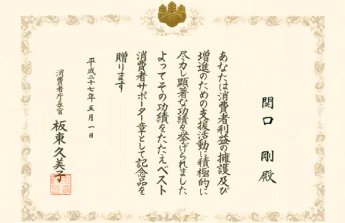 関口 剛 殿
あなたは消費者利益の擁護及び
増進のための支援活動に積極的に
尽力し顕著な功績を挙げられました
よってその功績をたたえベスト
消費者サポーター章として記念品を
贈ります
平成二十七年五月一日
消費者庁長官
板東久美子